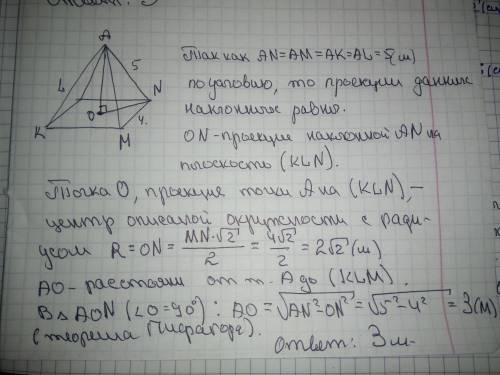 A
5
L
N
O
4.
K
M
Так как AN=AM=AK=AL=5(м)
по условию, то проекции данных
наклонных равны.
ON-проекция наклонной AN на
плоскость (KLN).
Точка O, проекция точки A на (KLN),-
центр описанной окружности с ради-
усом R=ON= MN·√2/2 = 4√2/2 = 2√2 (м)
AO- расстояние от т. A до (KLM).
В △ AON (∠O=90°): AO = √AN²-ON² = √5²-4² = 3(м)
(теорема Пифагора).
Ответ: 3 м.